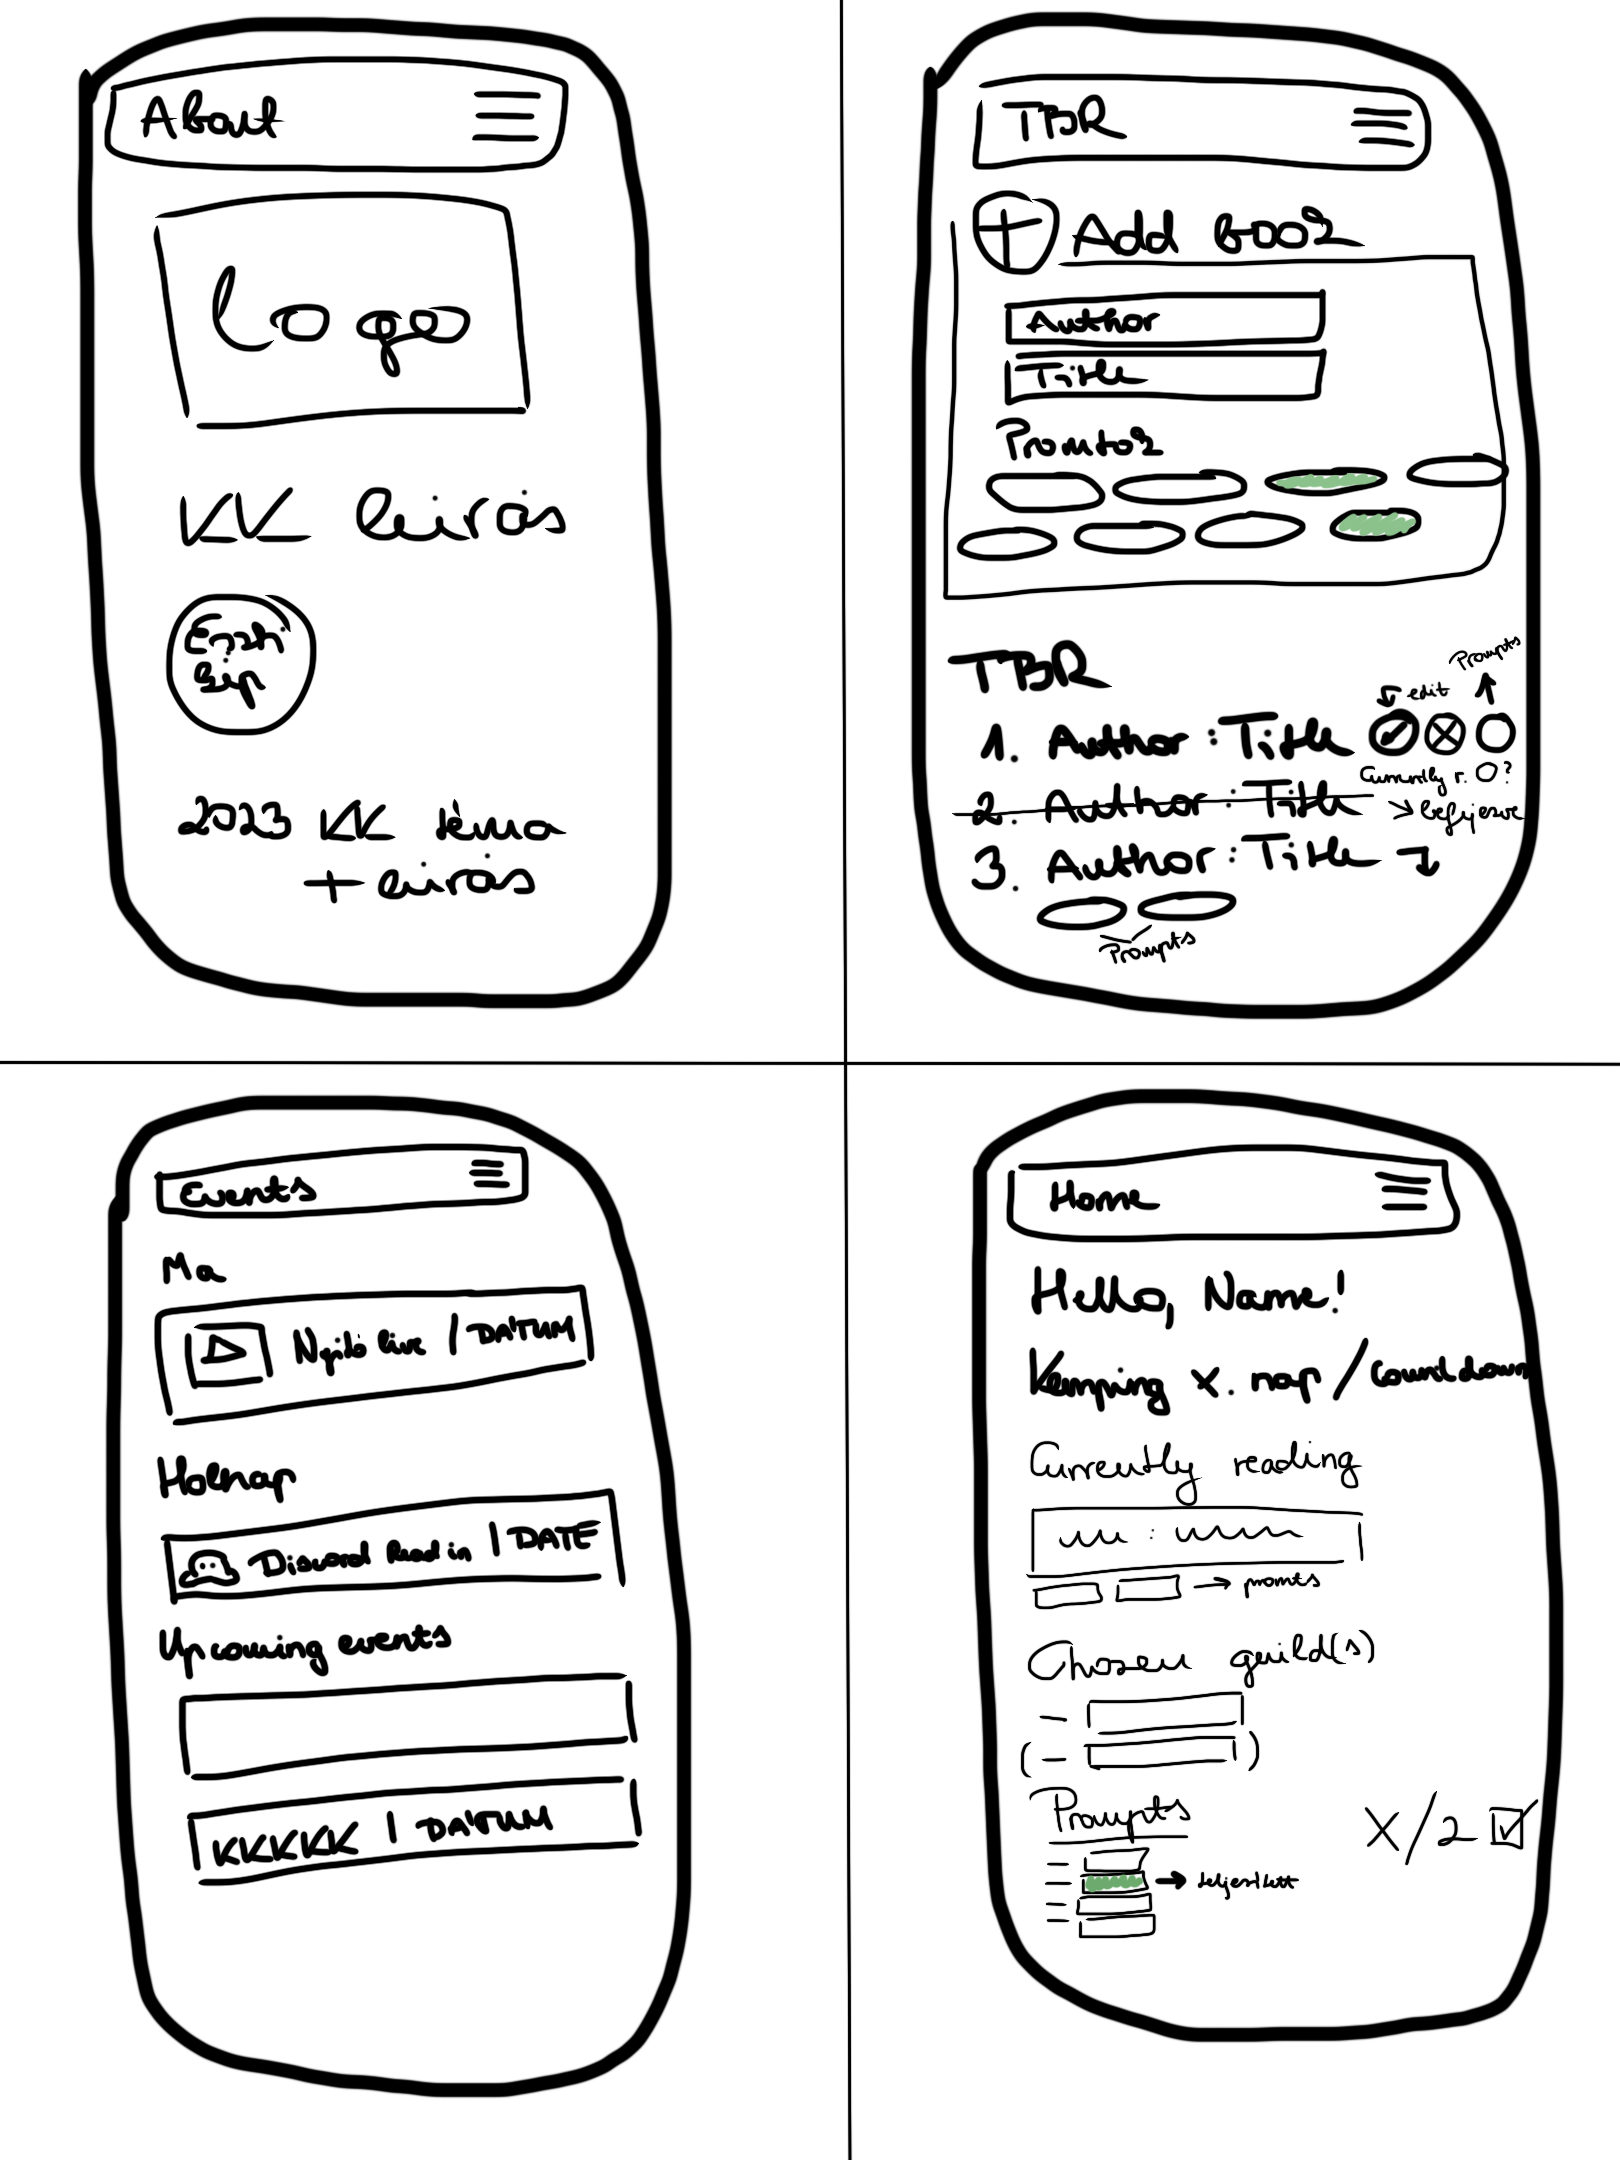 About
Logo
KK leírás
2023 KK téma
+ leírás
TBR
Add book
Author
Title
Promtok
TBR
Prompts
edit
1. Author : Title
Currently r. O?
2. Author : Title
befejezve
3. Author : Title
Prompts
Events
Ma
Nyitó live | DÁTUM
Holnap
Discord Read in | DATE
Upcoming events
KKKKK | DÁTUM
Home
Hello, Name!
Kemping x. nap / Countdown
Currently reading
promts
Chosen guild(s)
Prompts
X/2
teljesített